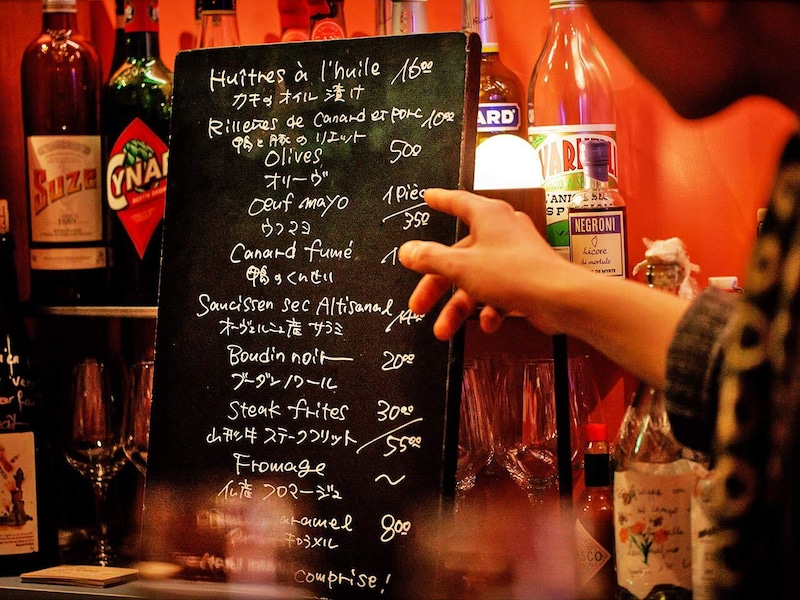 Huîtres à l'huile 16⁰⁰
カキのオイル漬け
Rillettes de Canard et porc 10⁰⁰
鴨と豚のリエット
Olives 500
オリーヴ
Œuf mayo 1 Pièce
ウフマヨ 350
Canard fumé
鴨のくんせい
Saucissen sec Altisanal 14⁰⁰
オーヴェルニュ産 サラミ
Boudin noir 20⁰⁰
ブーダンノワール
Steak frites 30⁰⁰
ステークフリット 55⁰⁰
Fromage ~
仏産 フロマージュ
aramel 800
キャラメル
comprise!
SUZE
CYNAR
ARD
NEGRONI
Licore
di mortule